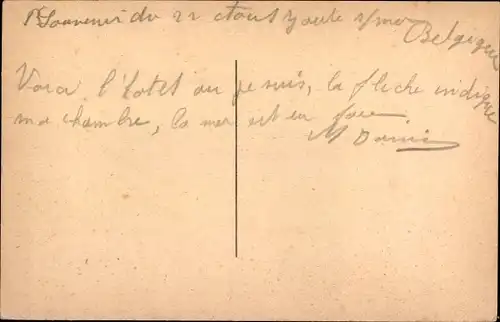 Souvenir du 22 Août Zoute s/mer Belgique
Voici l'hotel ou je suis, la fleche indique
ma chambre, la mer est en face
M